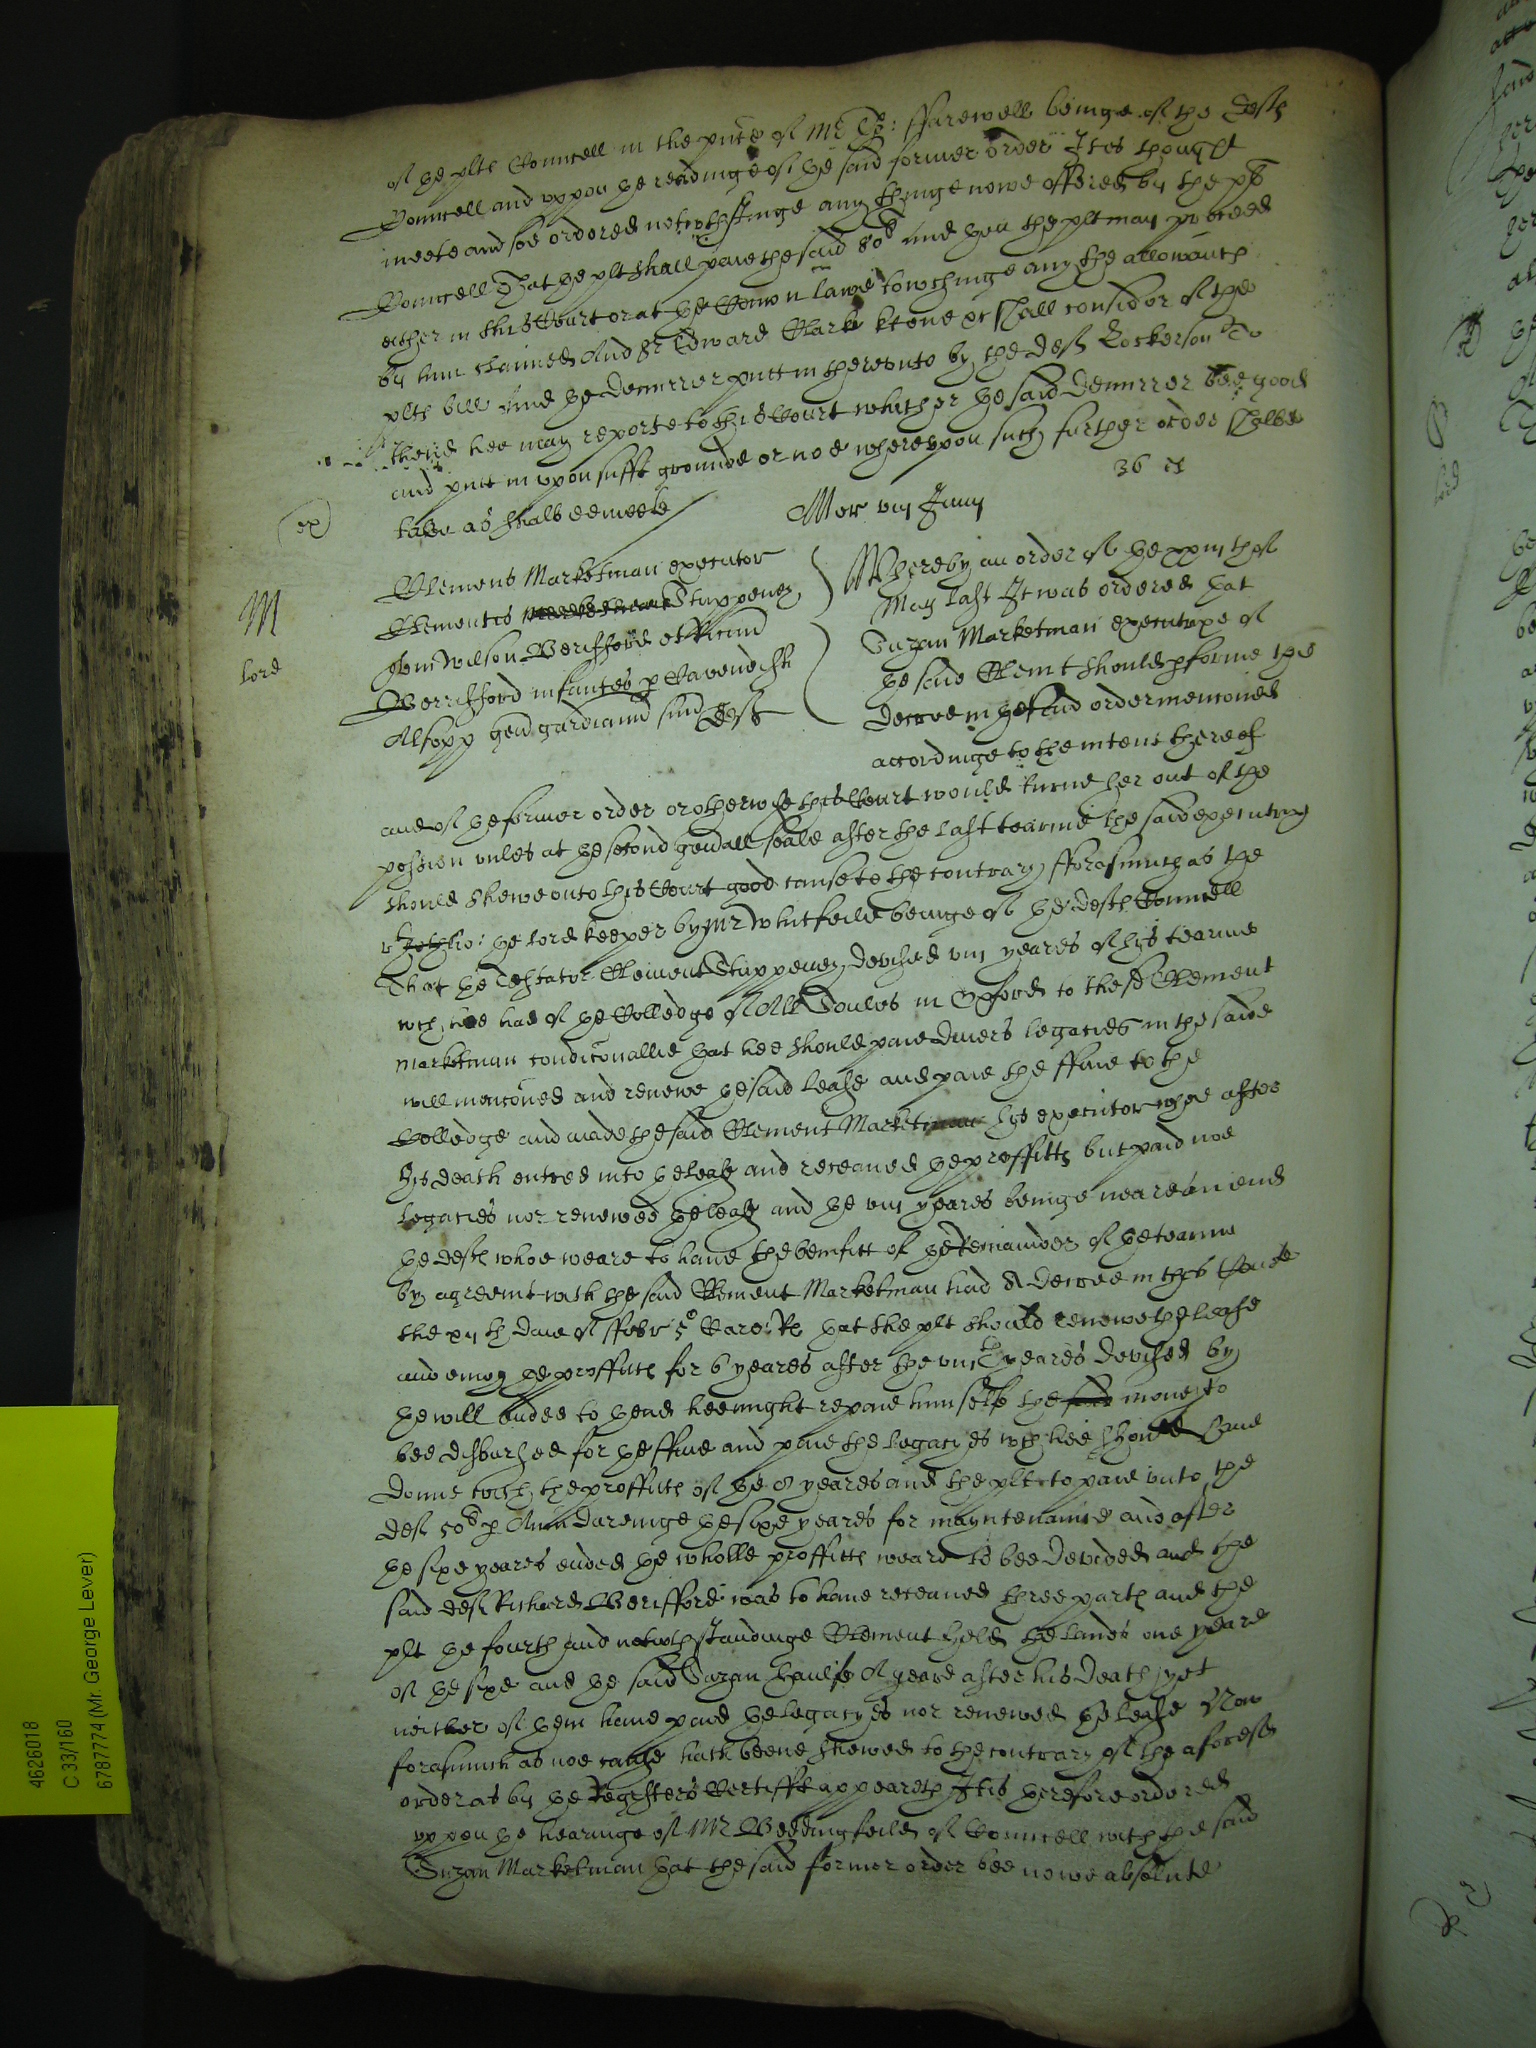 of ye plts Councell in the pnce of Mr Th: ffarewell beinge of the Defts
Councell and uppon ye readinge of ye said former order It is thought
meete and soe ordered notwthstandinge any thinge nowe offered by the plts
Councell That ye plt shall paie the said 80l And yen the plt may proceed
either in this Court or at ye Comon lawe towchinge any the allowaunces
by him claimed And Sr Edward Clark kt one &c shall consider of the
plts bill And ye demurrer putt in thereunto by the deft Cockerson To
thend hee may reporte to this Court whither ye said demurrer bee good
and putt in upon sufft grounde or noe whereupon such further order shalbe
taken as shalbe meete
ex
Mer viij Junij
36
M
Lord
Clemens Marketman executor
Clementis Stuppeney
John Wilson Berifford et Ricus
Berrifford infantes p Cavendish
Alsopp gen gardianu suu Deft
Whereby an order of ye xxiijth of
May last It was ordered yat
Suzan Marketman executrixe of
ye said Clemt should pforme the
decree in ye said order menconed
accordinge to the intent thereof
and of ye former order or otherwise this Court would turne her out of the
possession unles at ye second genall seale after the last tearme the said executrix
should shewe unto this Court good cause to the contrary fforasmuch as the
ye lord keeper by Mr Whitfeild beinge of ye defts Councell
That ye Testator Clement Stuppeney devised viij yeares of his tearme
wch hee had of ye Colledge of All Soules in Oxford to the sd Clement
Marketman condiconallie yat hee should paie divers legacies in the said
will menconed and renewe ye said lease and paie the ffine to the
Colledge and made the said Clement Marketman his executor whoe after
his death entred into ye lease and receaved ye proffitts but paid noe
legacies nor renewed ye lease and ye viij yeares beinge neare an end
ye defts whoe weare to have the benifitt of ye Remainder of ye tearme
by agreemt with the said Clement Marketman had A decree in this Courte
the xijth daie of ffebr 5o Caro: Rs yat the plt should renewe the lease
and enioy ye proffitts for 6 yeares after the viijth yeares devised by
ye will ended to yend hee might repaie himselfe the money to
bee disbursed for ye ffine and paie the legacyes wch hee should have
donne with the proffitts of ye 8 yeares and the plt to paie unto the
deft 50l p Annu dureinge ye sixe yeares for mayntenaunce and after
ye sixe yeares ended ye wholle proffitts weare to bee devided and the
said deft Richard Berifford was to have receaved three parts and the
plt ye fourth And notwthstandinge Clement held the lands one yeare
of ye sixe and ye said Suzan halfe A yeare after his death yet
neither of yem have paid ye legacyes nor renewed ye lease Now
forasmuch as noe cause hath beene shewed to the contrary of the aforesd
order as by ye Registers Certifft appeareth It is yerefore ordered
uppon ye hearinge of Mr Beddingfeild of Councell with the said
Suzan Marketman yat the said former order bee nowe absolute
4626018
C 33/160
6787774 (Mr. George Lever)